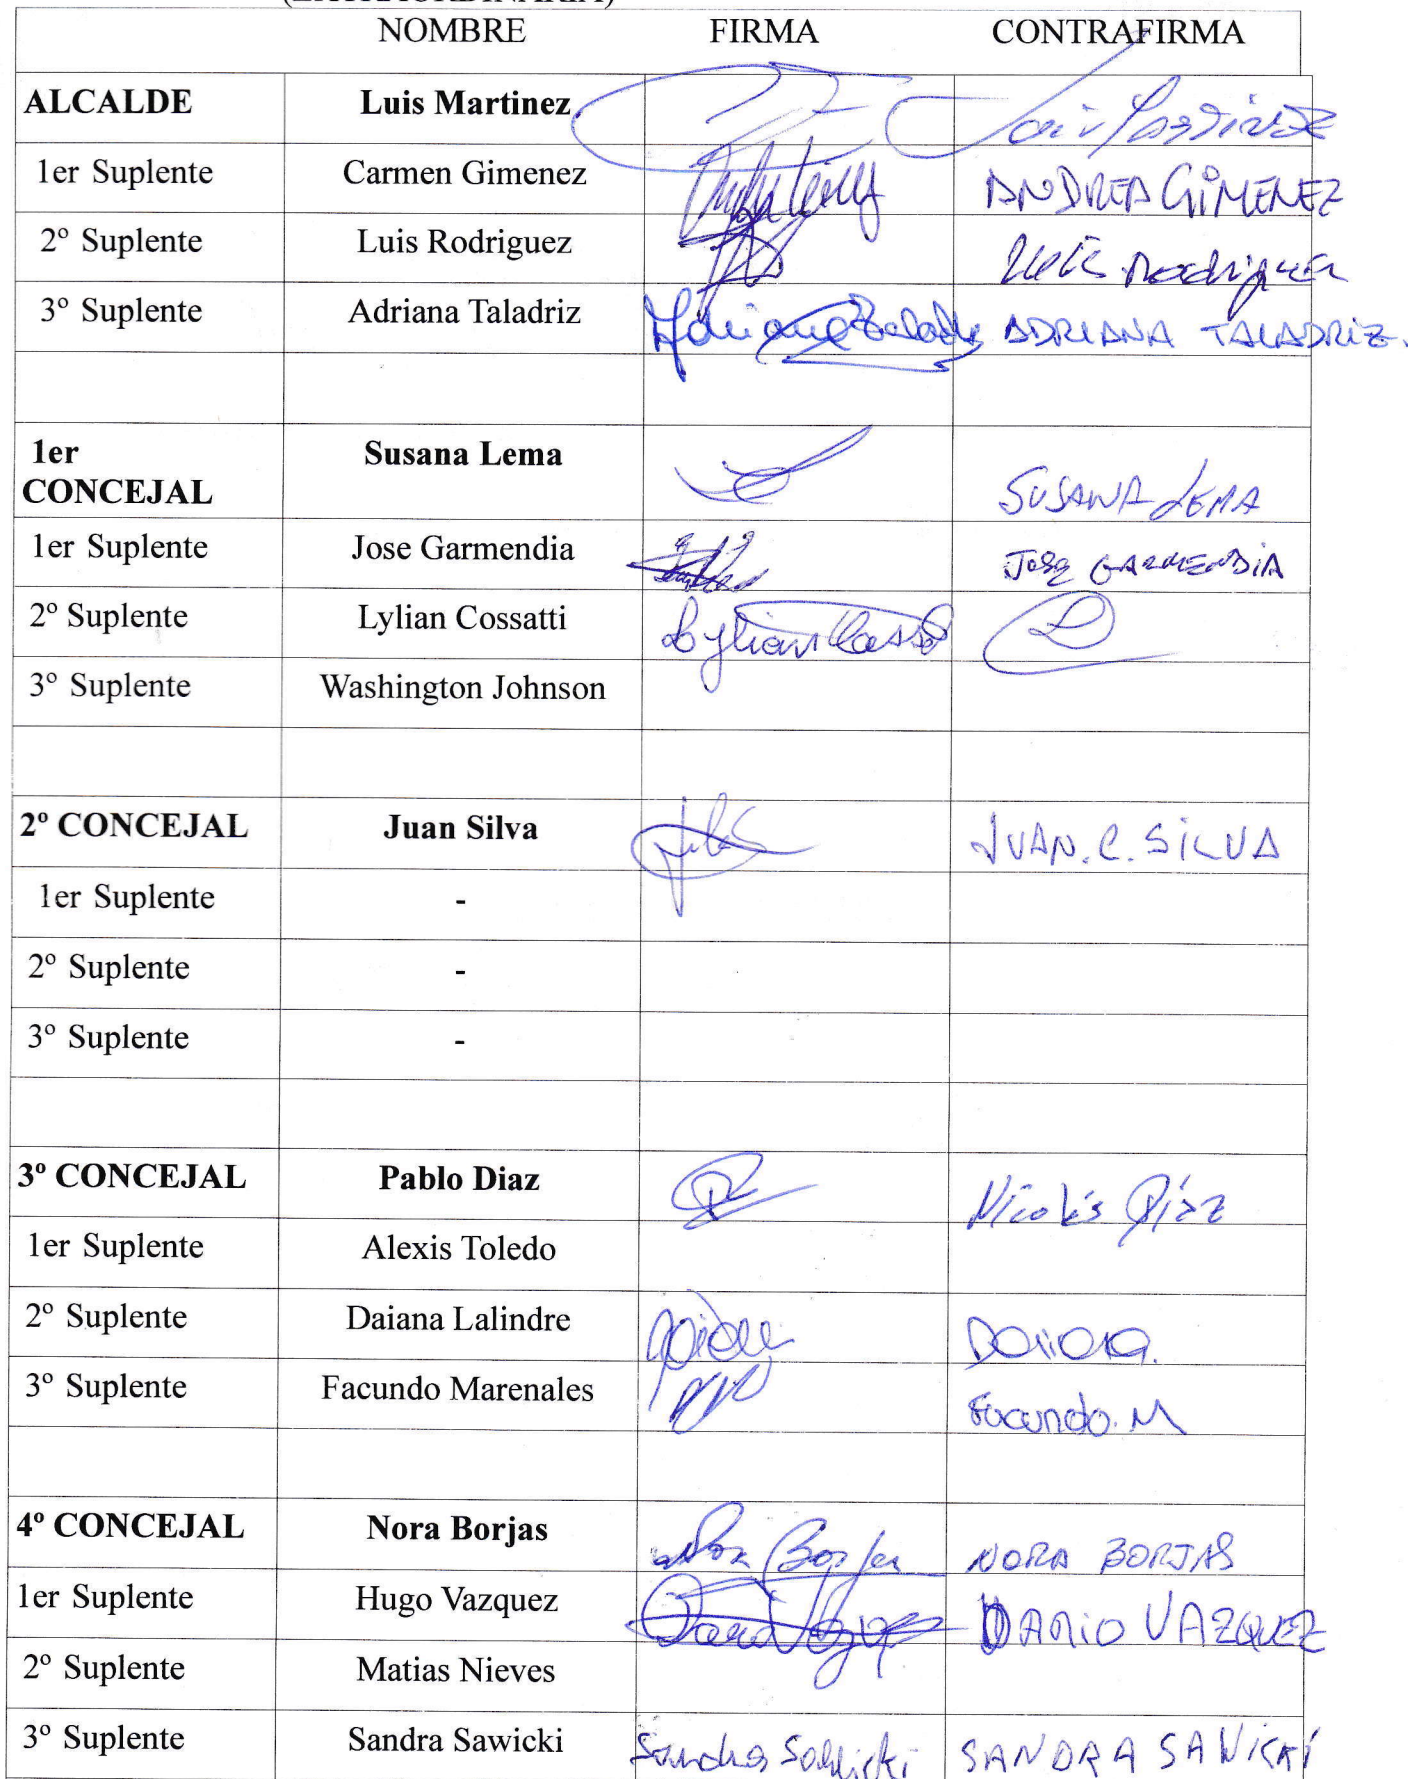 NOMBRE FIRMA CONTRAFIRMA
ALCALDE Luis Martinez
1er Suplente Carmen Gimenez ANDREA GIMENEZ
2º Suplente Luis Rodriguez Luis Rodriguez
3º Suplente Adriana Taladriz Adriana ADRIANA TALADRIZ.
1er
CONCEJAL Susana Lema SUSANA LEMA
1er Suplente Jose Garmendia JOSE GARMENDIA
2º Suplente Lylian Cossatti Lylian
3º Suplente Washington Johnson
2º CONCEJAL Juan Silva JUAN. C. SILVA
1er Suplente -
2º Suplente -
3º Suplente -
3º CONCEJAL Pablo Diaz Nicolás Díaz
1er Suplente Alexis Toledo
2º Suplente Daiana Lalindre Daiana.
3º Suplente Facundo Marenales Facundo. M
4º CONCEJAL Nora Borjas Nora Borjas NORA BORJAS
1er Suplente Hugo Vazquez DARIO VAZQUEZ
2º Suplente Matias Nieves
3º Suplente Sandra Sawicki Sandra Sawicki SANDRA SAWICKI